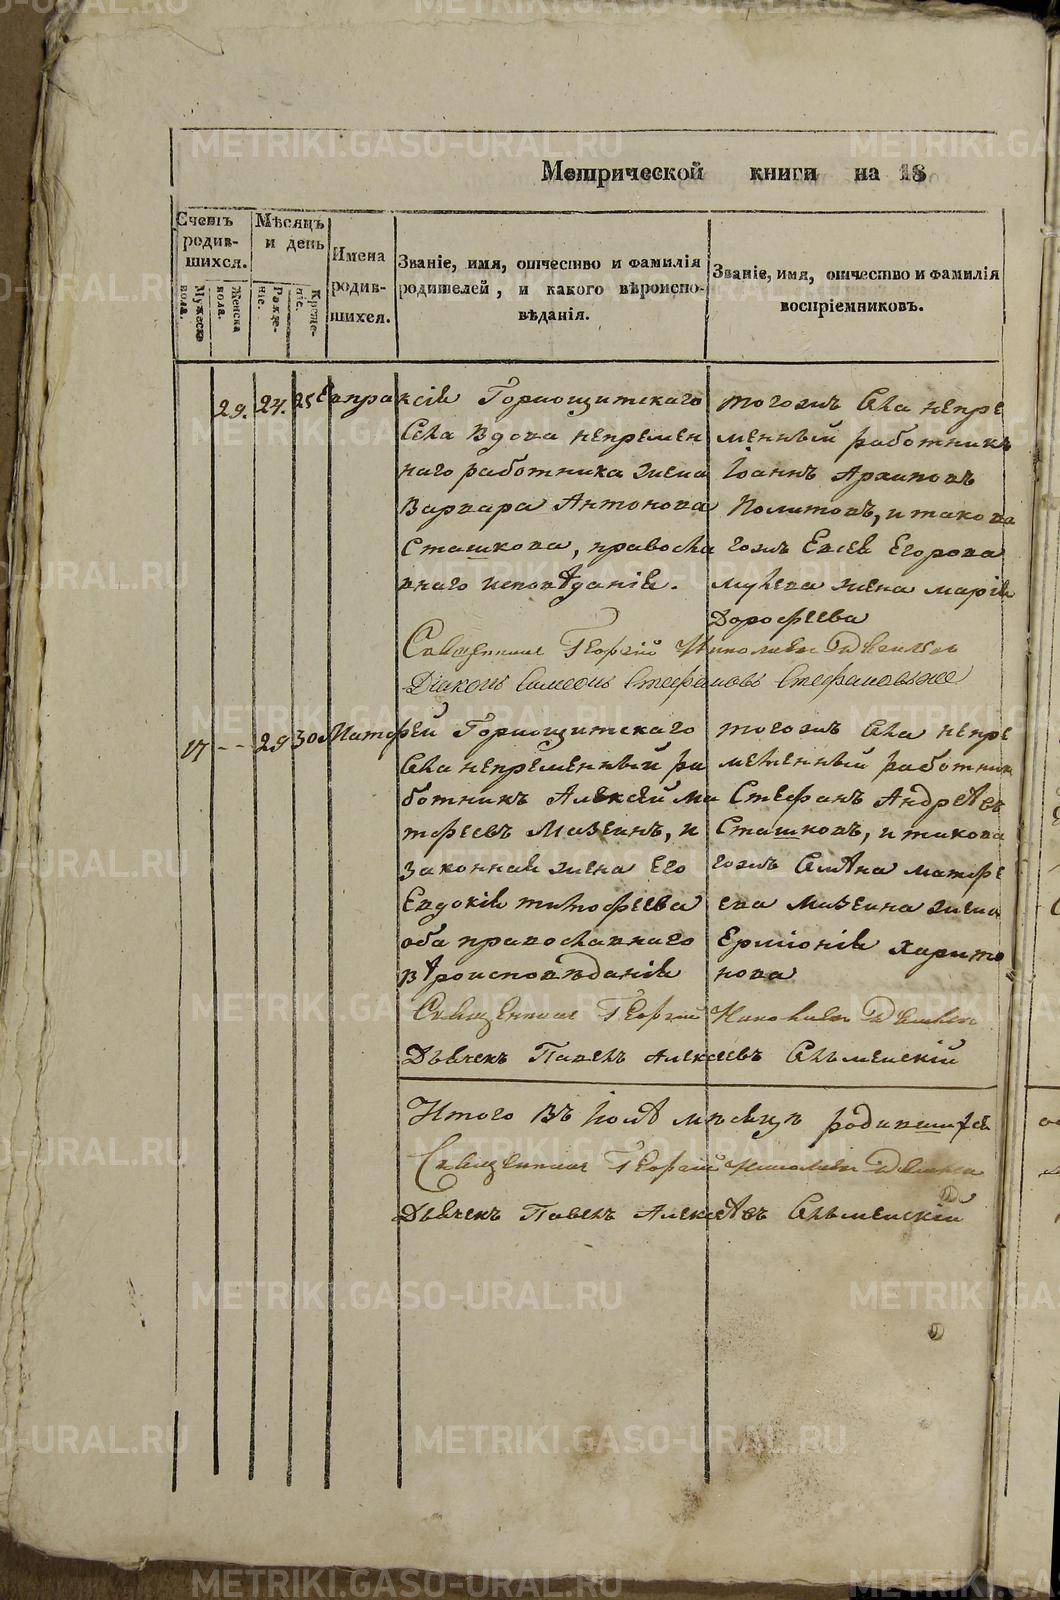 Метрической книги на 18
Счетъ родившихся.
Мужеска пола.
Женска пола.
Мѣсяцъ и день
Рожденіе.
Крещеніе.
Имена родившихся.
Званіе, имя, отчество и фамилія
родителей, и какого вѣроиспо-
вѣданія.
Званіе, имя, отчество и фамилія
воспріемниковъ.
29. 24. 25 Евпраксія Горнощитскаго
Села вдова непремен
наго работника жена
Варвара Антонова
Сташкова, правосла
внаго исповѣданія.
тогожъ Села непре
менный работникъ
Іоаннъ Архиповъ
Политовъ, и такова
гожъ Евсея Егорова
жена Марія
Дорофеева
Священник Георгій Николаев
Діаконъ Симеонъ Стефановъ
17 -- 29 30 Матфей Горнощитскаго
Села непременный ра
ботникъ Алексей Ма
тфеевъ Мизеинъ, и
законная жена его
Евдокія Тимофеева
оба православнаго
вѣроисповѣданія
тогожъ Села непре
менный работник
Стефанъ Андрѣевъ
Сташковъ, и такова
гожъ Села Матфе
ева Мизеина жена
Ерміонія Харито
нова
Священник Георгій Николаев
Дьячекъ Павелъ Алексеевъ Сельменскій
Итого въ Іюлѣ мѣсяцѣ родившихся
Священник Георгій Николаев
Дьячекъ Павелъ Алексѣевъ Сельменскій
METRIKI.GASO-URAL.RU